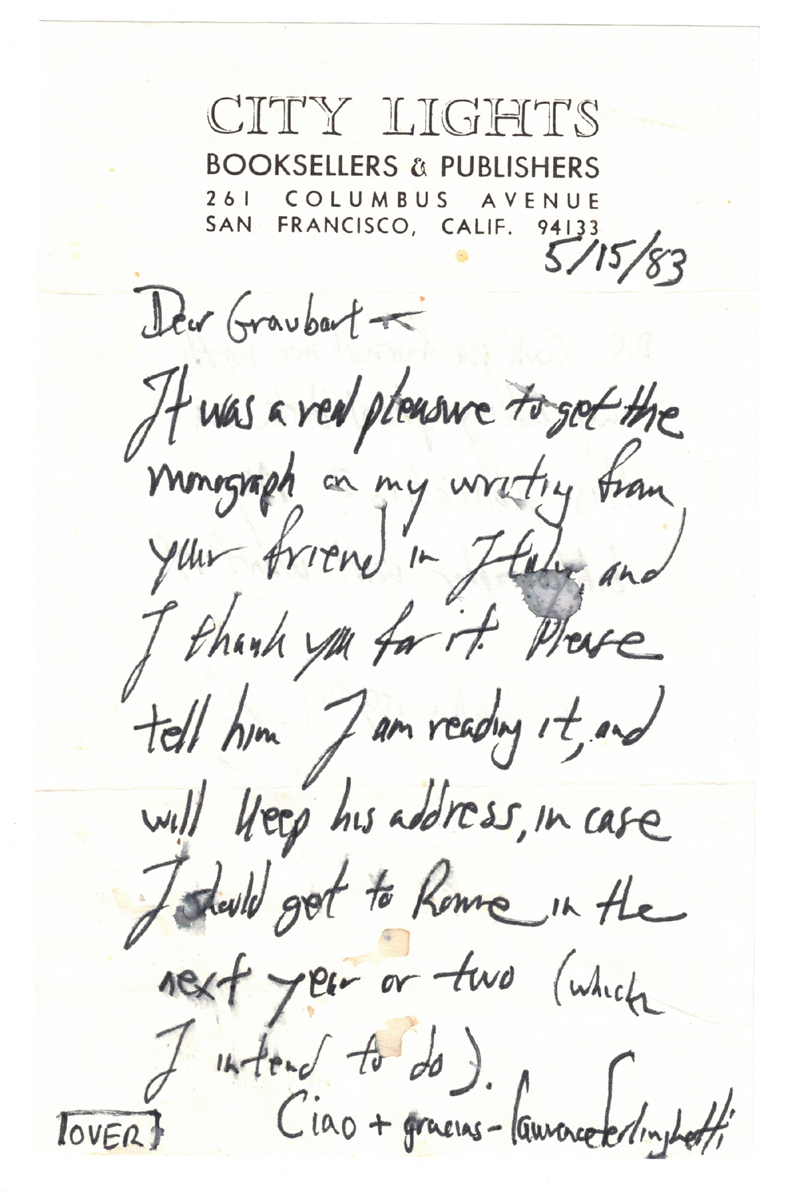 CITY LIGHTS
BOOKSELLERS & PUBLISHERS
261 COLUMBUS AVENUE
SAN FRANCISCO, CALIF. 94133
5/15/83
Dear Graubart —
It was a real pleasure to get the
monograph on my writing from
your friend in Italy, and
I thank you for it. Please
tell him I am reading it, and
will keep his address, in case
I should get to Rome in the
next year or two (which
I intend to do).
Ciao + gracias – Lawrence Ferlinghetti
OVER